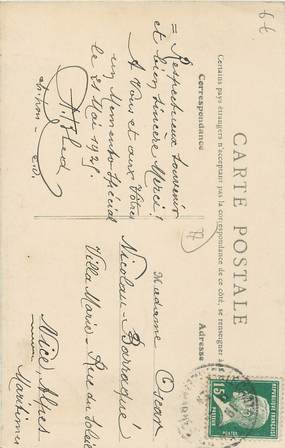 CARTE POSTALE
Certains pays étrangers n'acceptant pas la correspondance de ce côté, se renseigner à la
Correspondance
Adresse
= Respectueux souvenir
et bien sincère Merci!
A Vous et aux Vôtres
un Memento Spécial
le 21 Mai 1925.
Madame Oscar
Nicolau-
Villa Marie- Rue du Soleil
Nice, Alpes
Maritimes
77
REPUBLIQUE FRANÇAISE
15c
POSTES